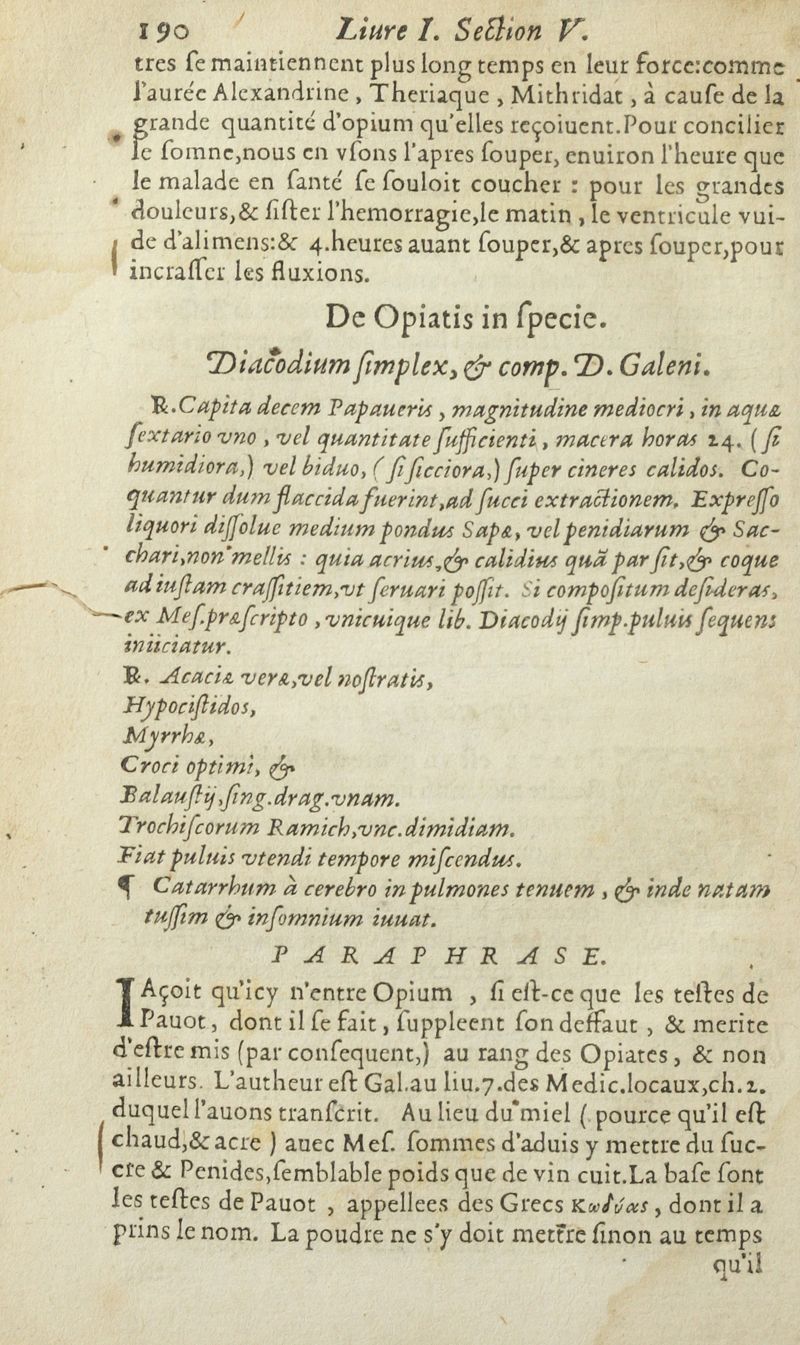 190 Liure I. Section V.
tres ſe maintiennent plus long temps en leur force:comme
l'aurée Alexandrine , Theriaque , Mithridat , à cauſe de la
grande quantité d'opium qu'elles reçoiuent.Pour concilier
le ſomne,nous en vſons l'apres ſouper, enuiron l'heure que
le malade en ſanté ſe ſouloit coucher : pour les grandes
douleurs,& ſiſter l'hemorragie,le matin , le ventricule vui-
de d'alimens:& 4.heures auant ſouper,& apres ſouper,pour
incraſſer les fluxions.
De Opiatis in ſpecie.
Diacodium ſimplex, & comp. D. Galeni.
℞.Capita decem Papaueris , magnitudine mediocri , in aquæ
ſextario vno , vel quantitate ſufficienti , macera horas 24. ( ſi
humidiora,) vel biduo, ( ſi ſicciora,) ſuper cineres calidos. Co-
quantur dum flaccida fuerint,ad ſucci extractionem. Expreſſo
liquori diſſolue medium pondus Sapæ, vel penidiarum & Sac-
chari,non*mellis : quia acrius,& calidius quã par ſit,& coque
ad iuſtam craſſitiem,vt ſeruari poſſit. Si compoſitum deſideras,
ex Meſ.præſcripto , vnicuique lib. Diacodij ſimp.puluis ſequens
iniiciatur.
℞. Acaciæ veræ,vel noſtratis,
Hypociſtidos,
Myrrhæ,
Croci optimi, &
Balauſtij,ſing.drag.vnam.
Trochiſcorum Ramich,vnc.dimidiam.
Fiat puluis vtendi tempore miſcendus.
¶ Catarrhum à cerebro in pulmones tenuem , & inde natam
tuſſim & inſomnium iuuat.
PARAPHRASE.
IAçoit qu'icy n'entre Opium , ſi eſt-ce que les teſtes de
Pauot, dont il ſe fait, ſuppleent ſon deffaut , & merite
d'eſtre mis (par conſequent,) au rang des Opiates, & non
ailleurs. L'autheur eſt Gal.au liu.7.des Medic.locaux,ch.2.
duquel l'auons tranſcrit. Au lieu du*miel ( pource qu'il eſt
chaud,& acre ) auec Meſ. ſommes d'aduis y mettre du ſuc-
cre & Penides,ſemblable poids que de vin cuit.La baſe ſont
les teſtes de Pauot , appellees des Grecs Κωδύας , dont il a
prins le nom. La poudre ne s'y doit mettre ſinon au temps
qu'il